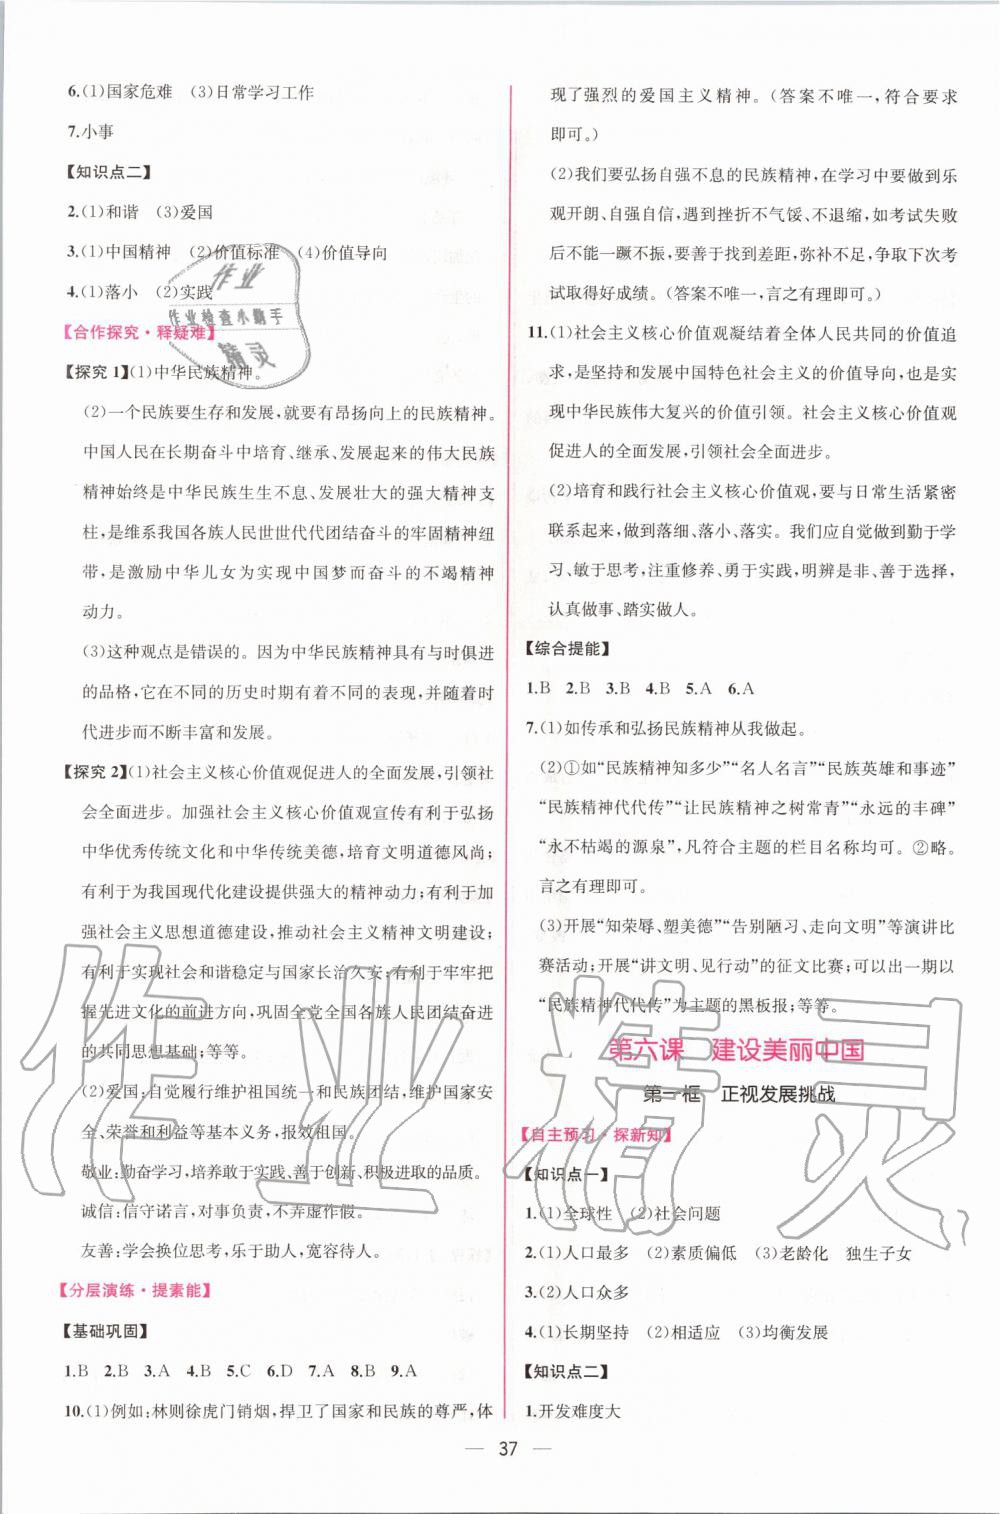 6.(1)国家危难　(3)日常学习工作
7.小事
【知识点二】
2.(1)和谐　(3)爱国
3.(1)中国精神　(2)价值标准　(4)价值导向
4.(1)落小　(2)实践
【合作探究·释疑难】
【探究1】(1)中华民族精神。
(2)一个民族要生存和发展，就要有昂扬向上的民族精神。
中国人民在长期奋斗中培育、继承、发展起来的伟大民族
精神始终是中华民族生生不息、发展壮大的强大精神支
柱，是维系我国各族人民世世代代团结奋斗的牢固精神纽
带，是激励中华儿女为实现中国梦而奋斗的不竭精神
动力。
(3)这种观点是错误的。因为中华民族精神具有与时俱进
的品格，它在不同的历史时期有着不同的表现，并随着时
代进步而不断丰富和发展。
【探究2】(1)社会主义核心价值观促进人的全面发展，引领社
会全面进步。加强社会主义核心价值观宣传有利于弘扬
中华优秀传统文化和中华传统美德，培育文明道德风尚；
有利于为我国现代化建设提供强大的精神动力；有利于加
强社会主义思想道德建设，推动社会主义精神文明建设；
有利于实现社会和谐稳定与国家长治久安；有利于牢牢把
握先进文化的前进方向，巩固全党全国各族人民团结奋斗
的共同思想基础；等等。
(2)爱国：自觉履行维护祖国统一和民族团结，维护国家安
全、荣誉和利益等基本义务，报效祖国。
敬业：勤奋学习，培养敢于实践、善于创新、积极进取的品质。
诚信：信守诺言，对事负责，不弄虚作假。
友善：学会换位思考，乐于助人，宽容待人。
【分层演练·提素能】
【基础巩固】
1.B　2.B　3.A　4.B　5.C　6.D　7.A　8.B　9.A
10.(1)例如：林则徐虎门销烟，捍卫了国家和民族的尊严，体
现了强烈的爱国主义精神。（答案不唯一，符合要求
即可。）
(2)我们要弘扬自强不息的民族精神，在学习中要做到乐
观开朗、自强自信，遇到挫折不气馁、不退缩，如考试失败
后不能一蹶不振，要善于找到差距，弥补不足，争取下次考
试取得好成绩。（答案不唯一，言之有理即可。）
11.(1)社会主义核心价值观凝结着全体人民共同的价值追
求，是坚持和发展中国特色社会主义的价值导向，也是实
现中华民族伟大复兴的价值引领。社会主义核心价值观
促进人的全面发展，引领社会全面进步。
(2)培育和践行社会主义核心价值观，要与日常生活紧密
联系起来，做到落细、落小、落实。我们应自觉做到勤于学
习、敏于思考，注重修养、勇于实践，明辨是非、善于选择，
认真做事、踏实做人。
【综合提能】
1.B　2.B　3.B　4.B　5.A　6.A
7.(1)如传承和弘扬民族精神从我做起。
(2)①如“民族精神知多少”“名人名言”“民族英雄和事迹”
“民族精神代代传”“让民族精神之树常青”“永远的丰碑”
“永不枯竭的源泉”，凡符合主题的栏目名称均可。②略。
言之有理即可。
(3)开展“知荣辱、塑美德”“告别陋习、走向文明”等演讲比
赛活动；开展“讲文明、见行动”的征文比赛；可以出一期以
“民族精神代代传”为主题的黑板报；等等。
第六课　建设美丽中国
第一框　正视发展挑战
【自主预习·探新知】
【知识点一】
1.(1)全球性　(2)社会问题
2.(1)人口最多　(2)素质偏低　(3)老龄化　独生子女
3.(2)人口众多
4.(1)长期坚持　(2)相适应　(3)均衡发展
【知识点二】
1.开发难度大
— 37 —
作业
作业检查小助手
精灵
作业精灵